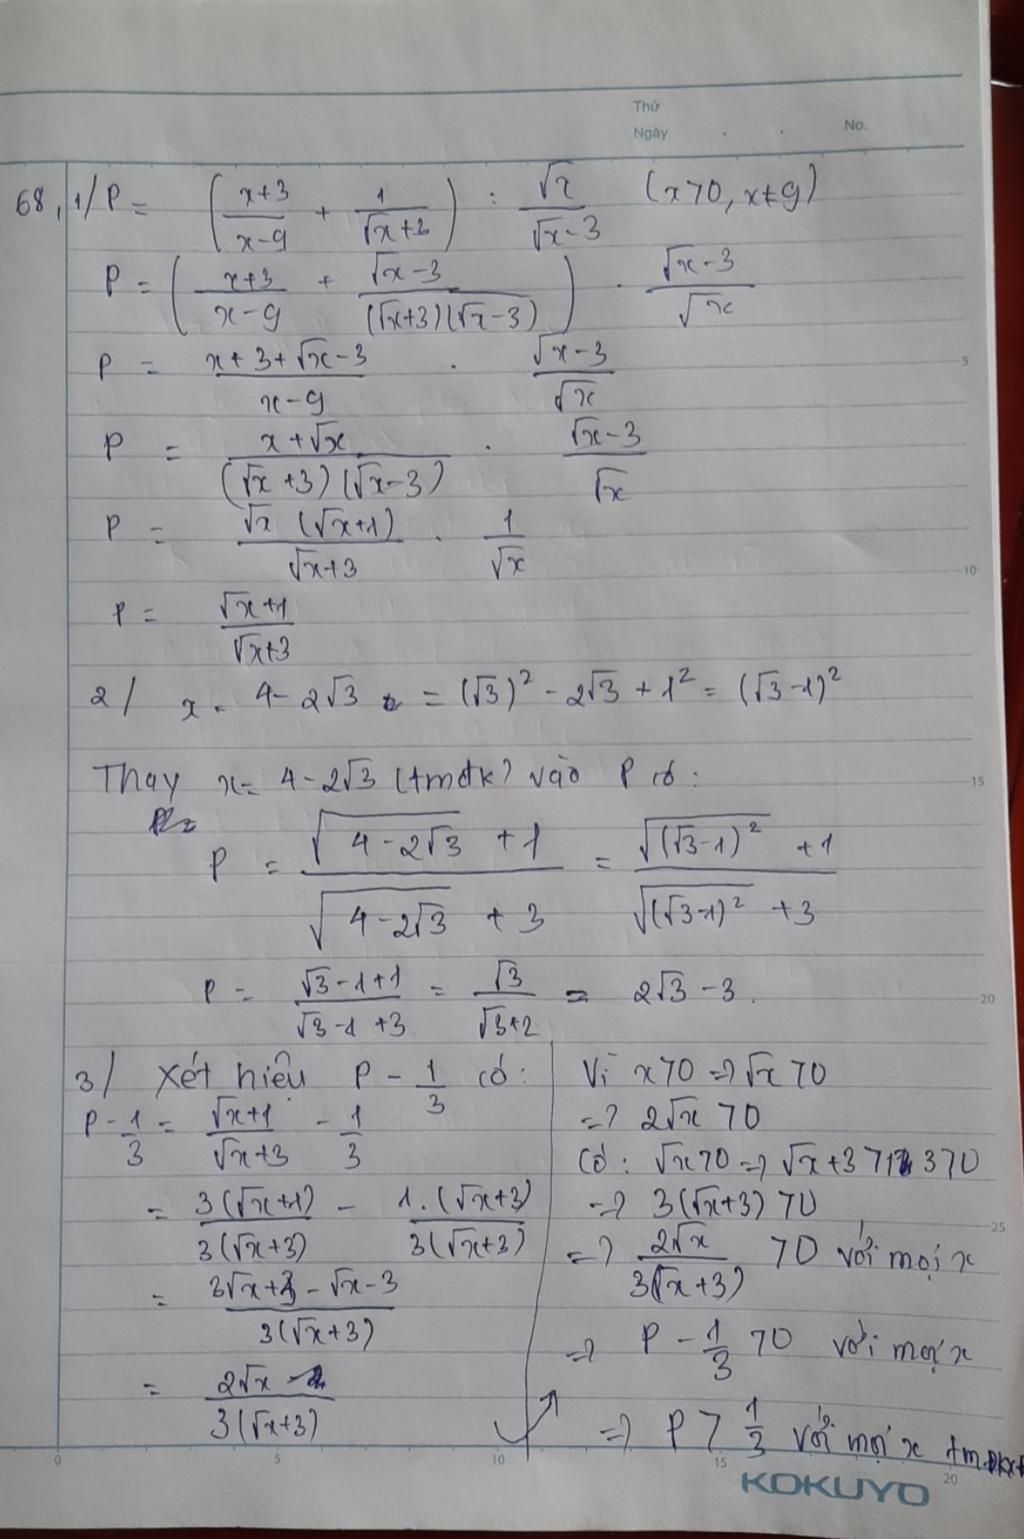 Thứ
Ngày . . No.
68, 1/ P = (x+3/x-9 + 1/√x+3) : √x/√x-3 (x>0, x≠9)
P = (x+3/x-9 + √x-3/(√x+3)(√x-3)) . √x-3/√x
P = x+3+√x-3/x-9 . √x-3/√x
5
P = x+√x/(√x+3)(√x-3) . √x-3/√x
P = √x(√x+1)/√x+3 . 1/√x
10
P = √x+1/√x+3
2/ x = 4-2√3 = (√3)² - 2√3 + 1² = (√3-1)²
Thay x = 4-2√3 (tmđk) vào P có:
15
P = √4-2√3 + 1/√4-2√3 + 3 = √(√3-1)² + 1/√(√3-1)² + 3
P = √3-1+1/√3-1+3 = √3/√3+2 = 2√3-3.
20
3/ Xét hiệu P - 1/3 có:
P - 1/3 = √x+1/√x+3 - 1/3
= 3(√x+1)/3(√x+3) - 1.(√x+3)/3(√x+3)
= 3√x+3-√x-3/3(√x+3)
= 2√x/3(√x+3)
Vì x>0 => √x>0
=> 2√x>0
Có: √x>0 => √x+3>3>0
=> 3(√x+3)>0
25
=> 2√x/3(√x+3) >0 với mọi x
=> P - 1/3 >0 với mọi x
=> P > 1/3 với mọi x
0 5 10 15 20
KOKUYO